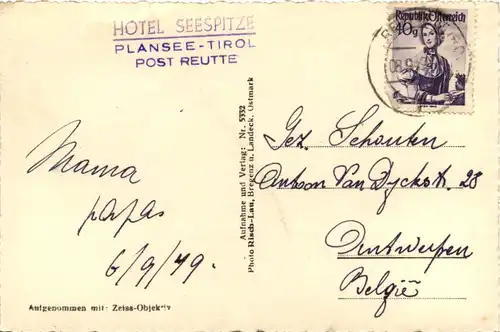 HOTEL SEESPITZE
PLANSEE-TIROL
POST REUTTE
Republik Österreich
40g
Mama
papa
6/9/49.
Aufgenommen mit: Zeiss-Objektiv
Aufnahme und Verlag: Nr. 5332
Photo Risch-Lau, Bregenz u. Landeck, Ostmark
Gez. Schouten
Antoon Van Dyckstr. 28
Antwerpen
België